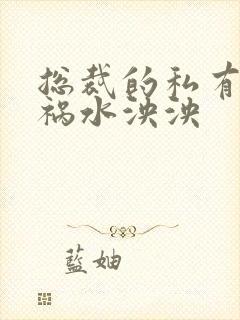 总裁的私有
祸水泱泱
藍妯